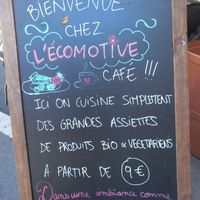 BIENVENUE
CHEZ
L'ÉCOMOTIVE
CAFÉ !!!
ICI ON CUISINE SIMPLEMENT
DES GRANDES ASSIETTES
DE PRODUITS BIO & VEGETARIENS
A PARTIR DE 9€
Dans une ambiance comme